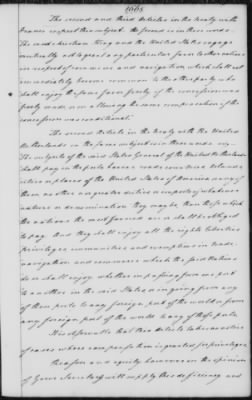 The second and third Articles in the treaty with
France respect this subject. The second is in these words.
The most christian King and the United States engage
mutually not to grant any particular favor to other nations
in respect of commerce and navigation, which shall not
immediately become common to the other party who
shall enjoy the same favor freely if the concession was
freely made, or on allowing the same compensation if the
concession was conditional.
The second Article in the treaty with the United
Netherlands on the same subject is in these words.
The subjects of the said States General of the United Netherlands
shall pay in the ports havens roads countries Islands
cities or places of the United States of America or any of
them no other or greater duties or imposts of whatever
nature or denomination they may be than those which
the nations the most favored are or shall be obliged
to pay. And they shall enjoy all the rights liberties
privileges immunities and exemptions in trade
navigation and commerce which the said nations
do or shall enjoy, whether in passing from one port
to another in the said States or in going from any
of those ports to any foreign port of the world or from
any foreign port of the world to any of those ports.
It is observable that this Article takes no notice
of cases where compensation is granted for privileges.
Reason and equity however in the opinion
of Your Secretary will supply this deficiency and